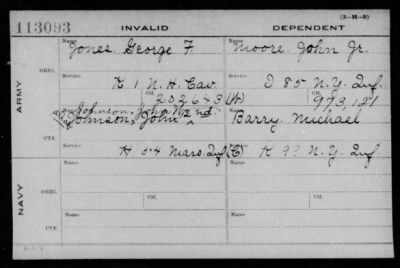 (3-11-3)
113093 INVALID DEPENDENT
Name Name
Jones, George F. Moore John Jr.
ORIG.
Service Service
K 1 N.H. Cav D 85 N.Y. Inf.
Ctf. Ctf.
ARMY
Name
Johnson, John, 2nd.
Johnson, John Barry Michael
CTF.
H 54 Mass. Inf (C) K 99 N.Y. Inf
Name Name
ORIG.
Service Ctf. Service Ctf.
NAVY
Name Name
CTF.